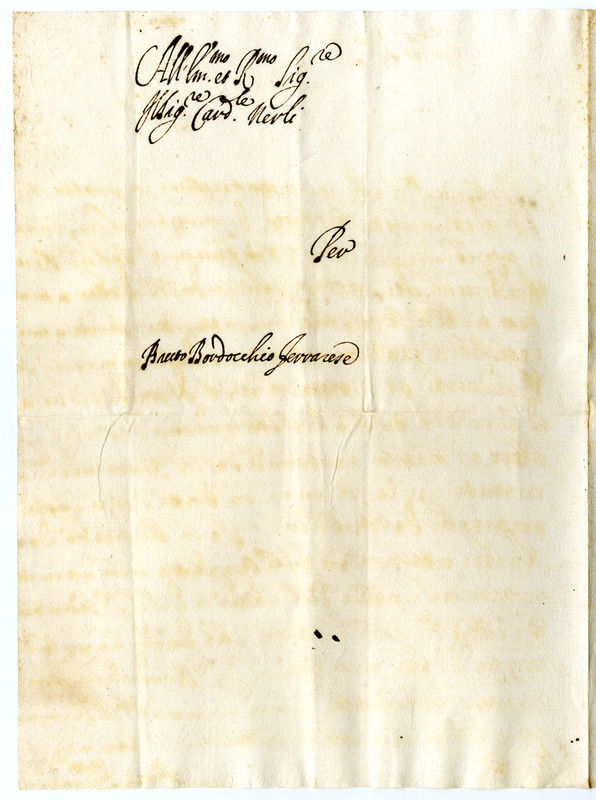 All'Em.mo et R.mo Sig.re
Il Sig.re Card.le Nerli.
Per
Bruto Bordocchio Ferrarese